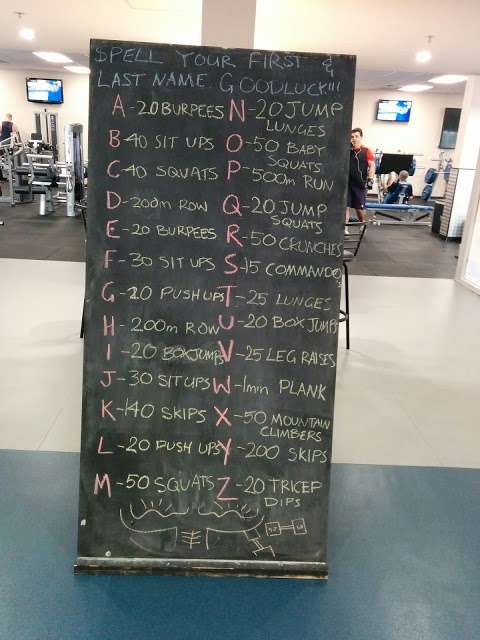 SPELL YOUR FIRST &
LAST NAME. GOODLUCK!!!
A-20 BURPEES
B-40 SIT UPS
C-40 SQUATS
D-200m ROW
E-20 BURPEES
F-30 SIT UPS
G-20 PUSH UPS
H-200m ROW
I-20 BOX JUMPS
J-30 SIT UPS
K-140 SKIPS
L-20 PUSH UPS
M-50 SQUATS
N-20 JUMP
LUNGES
O-50 BABY
SQUATS
P-500m RUN
Q-20 JUMP
SQUATS
R-50 CRUNCHES
S-15 COMMANDO'S
T-25 LUNGES
U-20 BOX JUMPS
V-25 LEG RAISES
W-1min PLANK
X-50 MOUNTAIN
CLIMBERS
Y-200 SKIPS
Z-20 TRICEP
DIPS